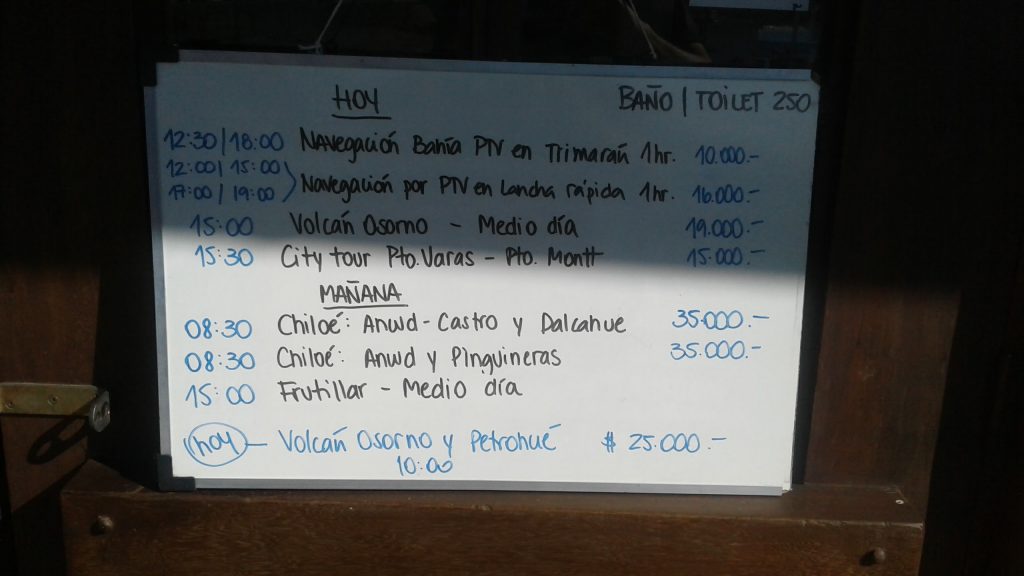 HOY BAÑO | TOILET 250
12:30 | 18:00 Navegación Bahía PTV en Trimarán 1 hr. 10.000.-
12:00 | 15:00
17:00 | 19:00 Navegación por PTV en Lancha rápida 1 hr. 16.000.-
15:00 Volcán Osorno - Medio día 19.000.-
15:30 City tour Pto. Varas - Pto. Montt 15.000.-
MAÑANA
08:30 Chiloé: Ancud - Castro y Dalcahue 35.000.-
08:30 Chiloé: Ancud y Pinguineras 35.000.-
15:00 Frutillar - Medio día
hoy - Volcán Osorno y Petrohué $ 25.000.-
10:00